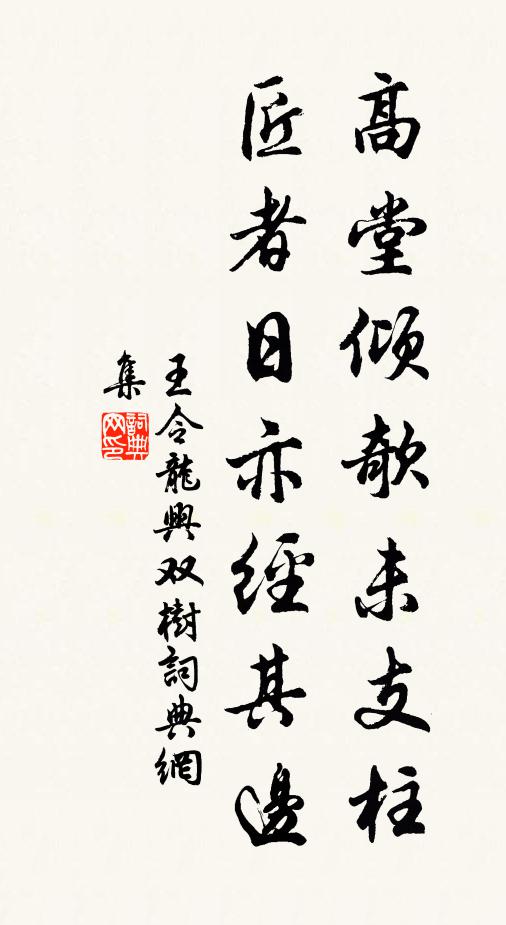 高堂傾欹未支柱
匠者日亦經其邊
王令龍興双樹詞典網
集
詞典
网印